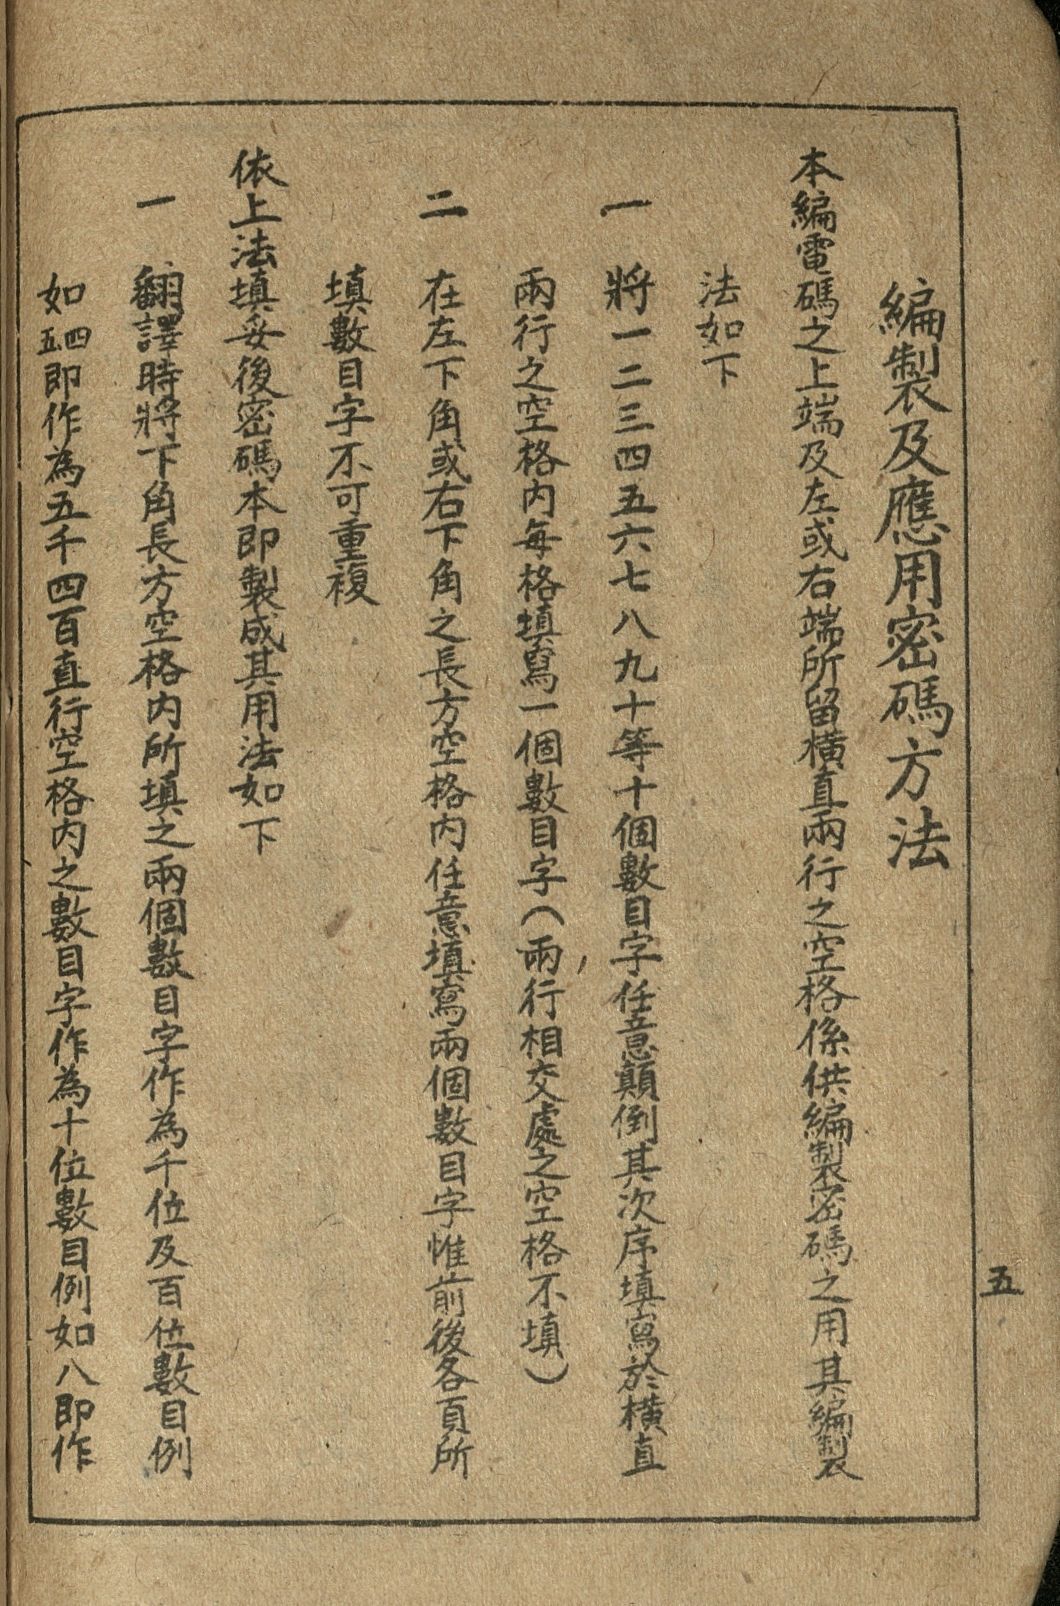 編製及應用密碼方法
本編電碼之上端及左或右端所留橫直兩行之空格係供編製密碼之用其編製
法如下
一 將一二三四五六七八九十等十個數目字任意顛倒其次序填寫於橫直
兩行之空格內每格填寫一個數目字（兩行相交處之空格不填）
二 在左下角或右下角之長方空格內任意填寫兩個數目字惟前後各頁所
填數目字不可重複
依上法填妥後密碼本即製成其用法如下
一 翻譯時將下角長方空格內所填之兩個數目字作為千位及百位數目例
如四五即作為五千四百直行空格內之數目字作為十位數目例如八即作
五